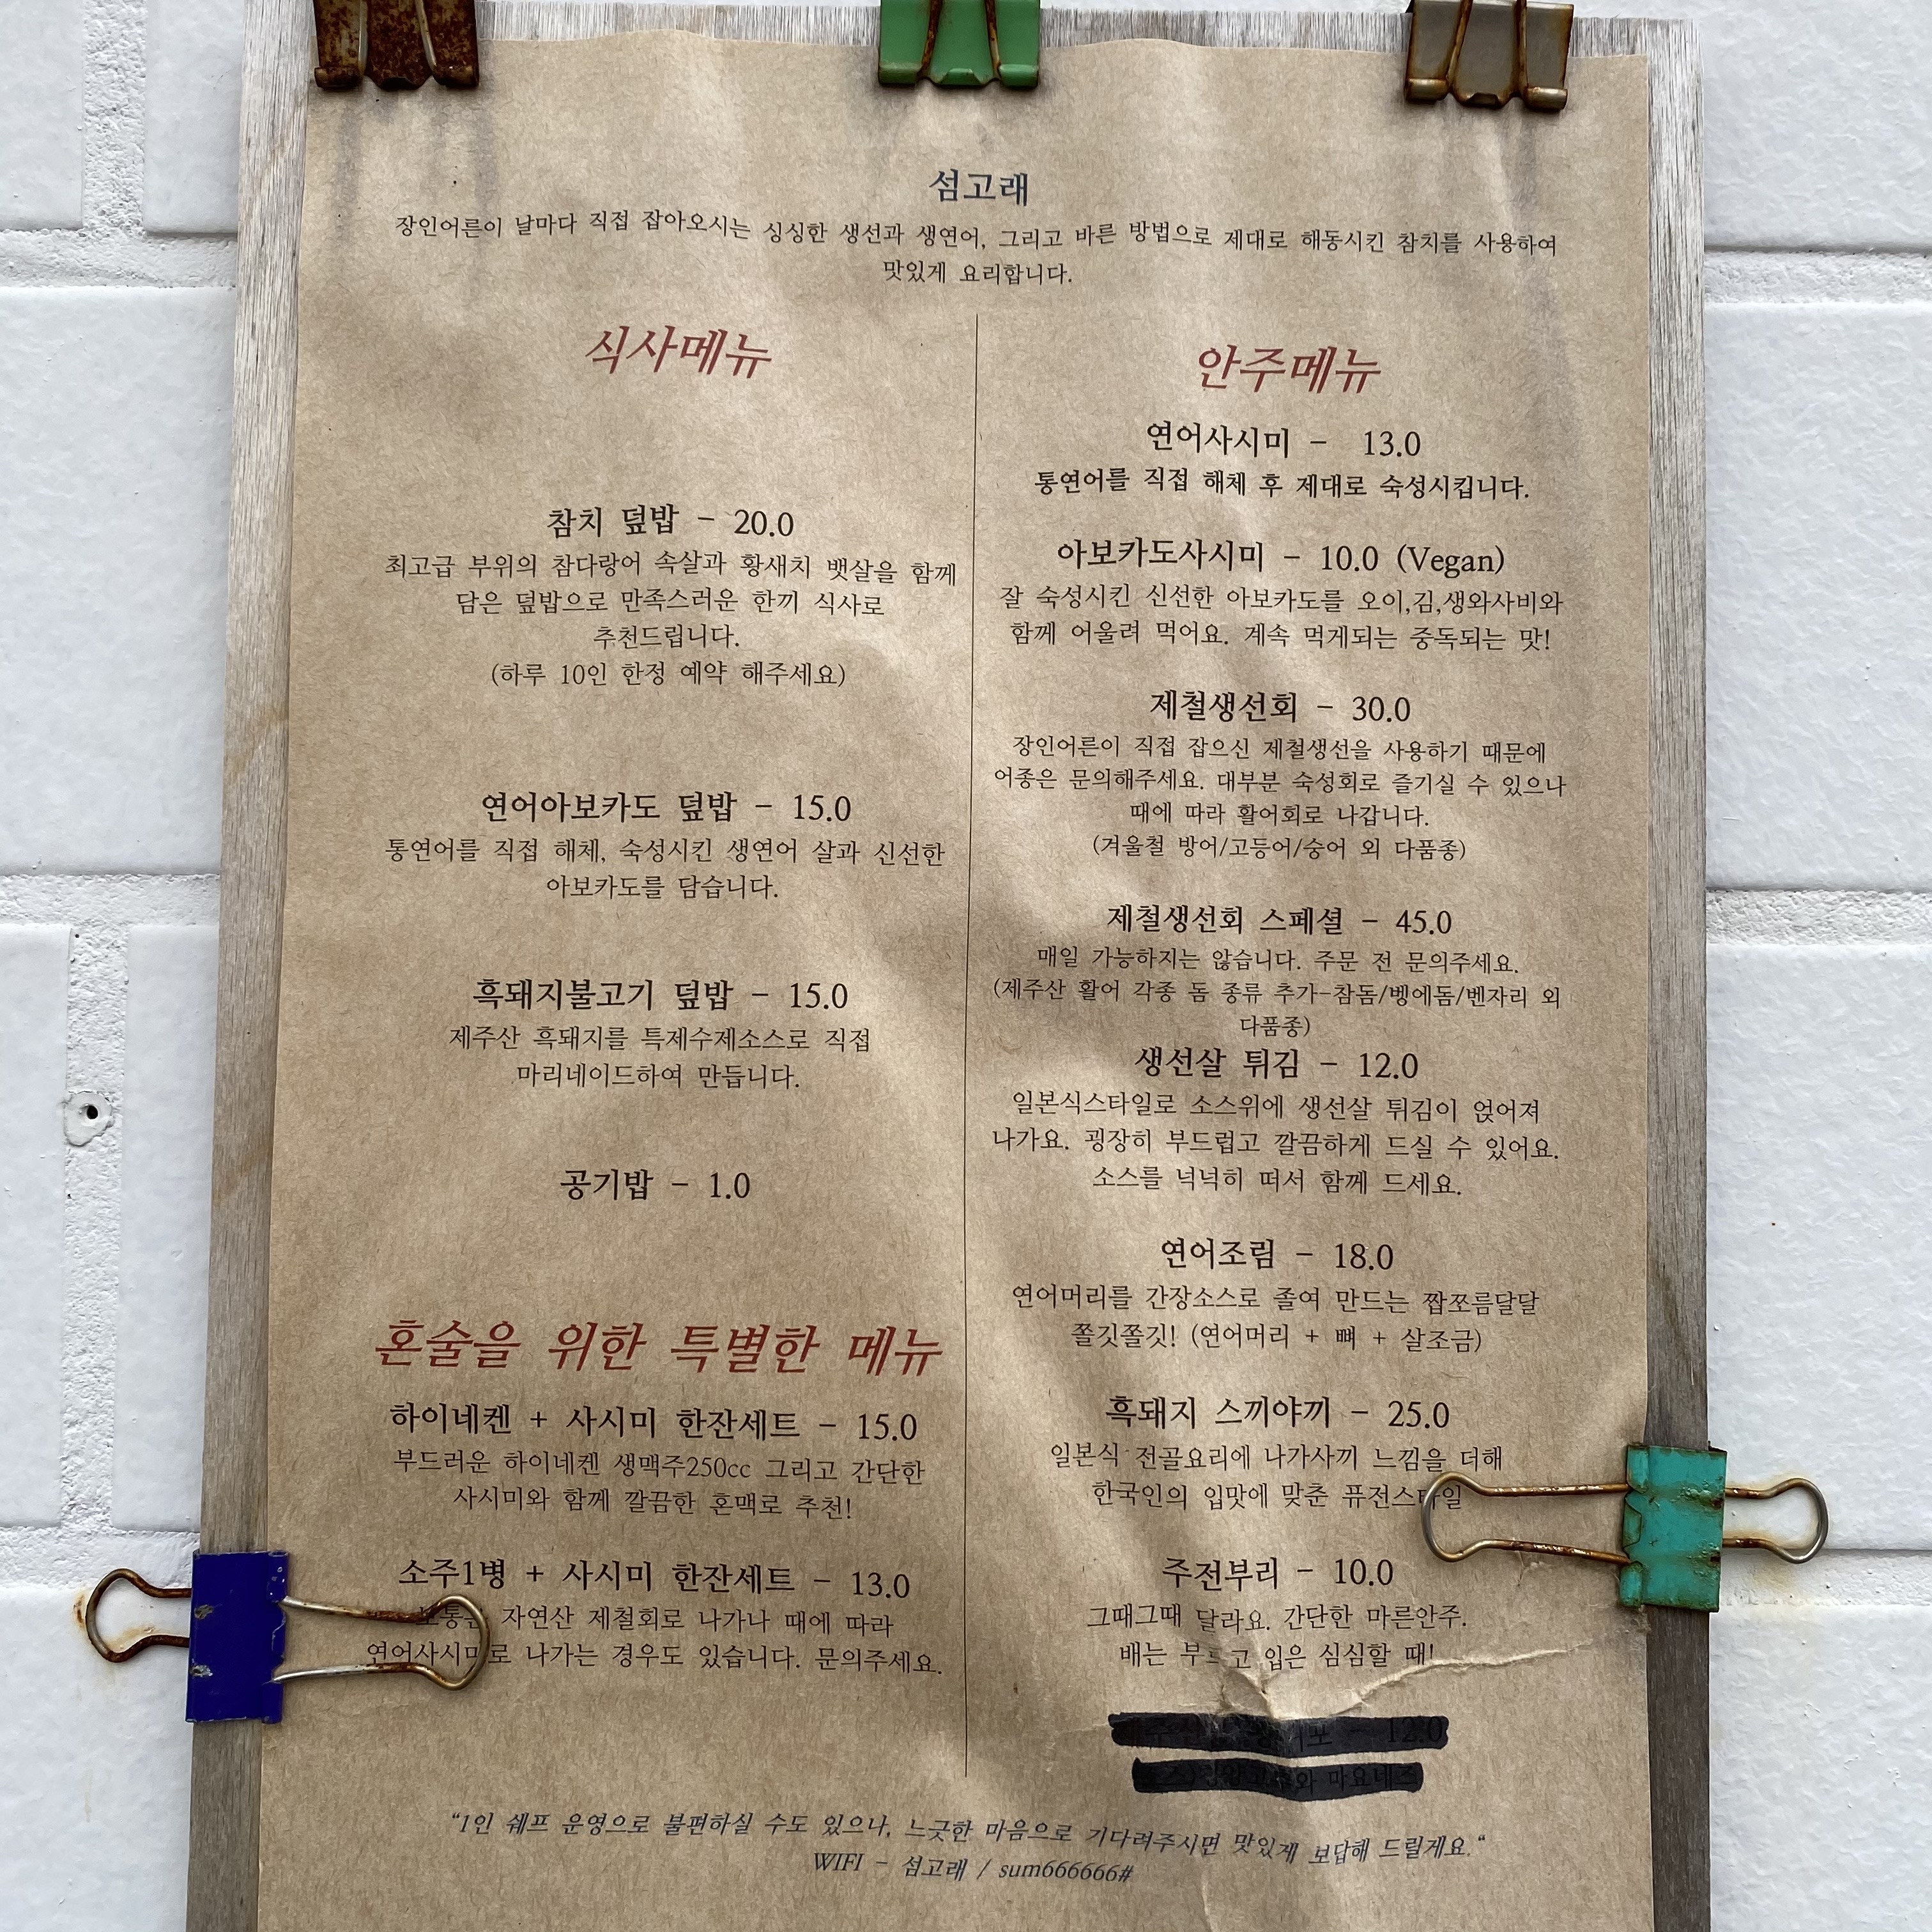 섬고래
장인어른이 날마다 직접 잡아오시는 싱싱한 생선과 생연어, 그리고 바른 방법으로 제대로 해동시킨 참치를 사용하여
맛있게 요리합니다.
식사메뉴
참치 덮밥 - 20.0
최고급 부위의 참다랑어 속살과 황새치 뱃살을 함께
담은 덮밥으로 만족스러운 한끼 식사로
추천드립니다.
(하루 10인 한정 예약 해주세요)
연어아보카도 덮밥 - 15.0
통연어를 직접 해체, 숙성시킨 생연어 살과 신선한
아보카도를 담습니다.
흑돼지불고기 덮밥 - 15.0
제주산 흑돼지를 특제수제소스로 직접
마리네이드하여 만듭니다.
공기밥 - 1.0
혼술을 위한 특별한 메뉴
하이네켄 + 사시미 한잔세트 - 15.0
부드러운 하이네켄 생맥주250cc 그리고 간단한
사시미와 함께 깔끔한 혼맥로 추천!
소주1병 + 사시미 한잔세트 - 13.0
보통은 자연산 제철회로 나가나 때에 따라
연어사시미로 나가는 경우도 있습니다. 문의주세요.
안주메뉴
연어사시미 - 13.0
통연어를 직접 해체 후 제대로 숙성시킵니다.
아보카도사시미 - 10.0 (Vegan)
잘 숙성시킨 신선한 아보카도를 오이,김,생와사비와
함께 어울려 먹어요. 계속 먹게되는 중독되는 맛!
제철생선회 - 30.0
장인어른이 직접 잡으신 제철생선을 사용하기 때문에
어종은 문의해주세요. 대부분 숙성회로 즐기실 수 있으나
때에 따라 활어회로 나갑니다.
(겨울철 방어/고등어/숭어 외 다품종)
제철생선회 스페셜 - 45.0
매일 가능하지는 않습니다. 주문 전 문의주세요.
(제주산 활어 각종 돔 종류 추가-참돔/벵에돔/벤자리 외
다품종)
생선살 튀김 - 12.0
일본식스타일로 소스위에 생선살 튀김이 얹어져
나가요. 굉장히 부드럽고 깔끔하게 드실 수 있어요.
소스를 넉넉히 떠서 함께 드세요.
연어조림 - 18.0
연어머리를 간장소스로 졸여 만드는 짭쪼름달달
쫄깃쫄깃! (연어머리 + 뼈 + 살조금)
흑돼지 스끼야끼 - 25.0
일본식 전골요리에 나가사끼 느낌을 더해
한국인의 입맛에 맞춘 퓨전스타일
주전부리 - 10.0
그때그때 달라요. 간단한 마른안주.
배는 부르고 입은 심심할 때!
- 12.0
마요네즈
“1인 쉐프 운영으로 불편하실 수도 있으나, 느긋한 마음으로 기다려주시면 맛있게 보답해 드릴게요.“
WIFI - 섬고래 / sum666666#